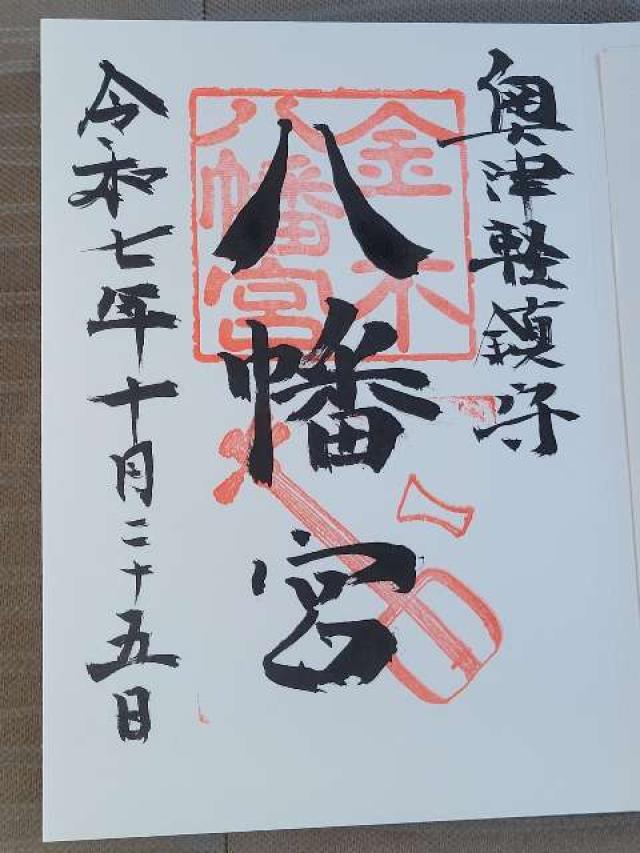 奥津軽鎮守
金木
八幡宮
八幡宮
令和七年十月二十五日